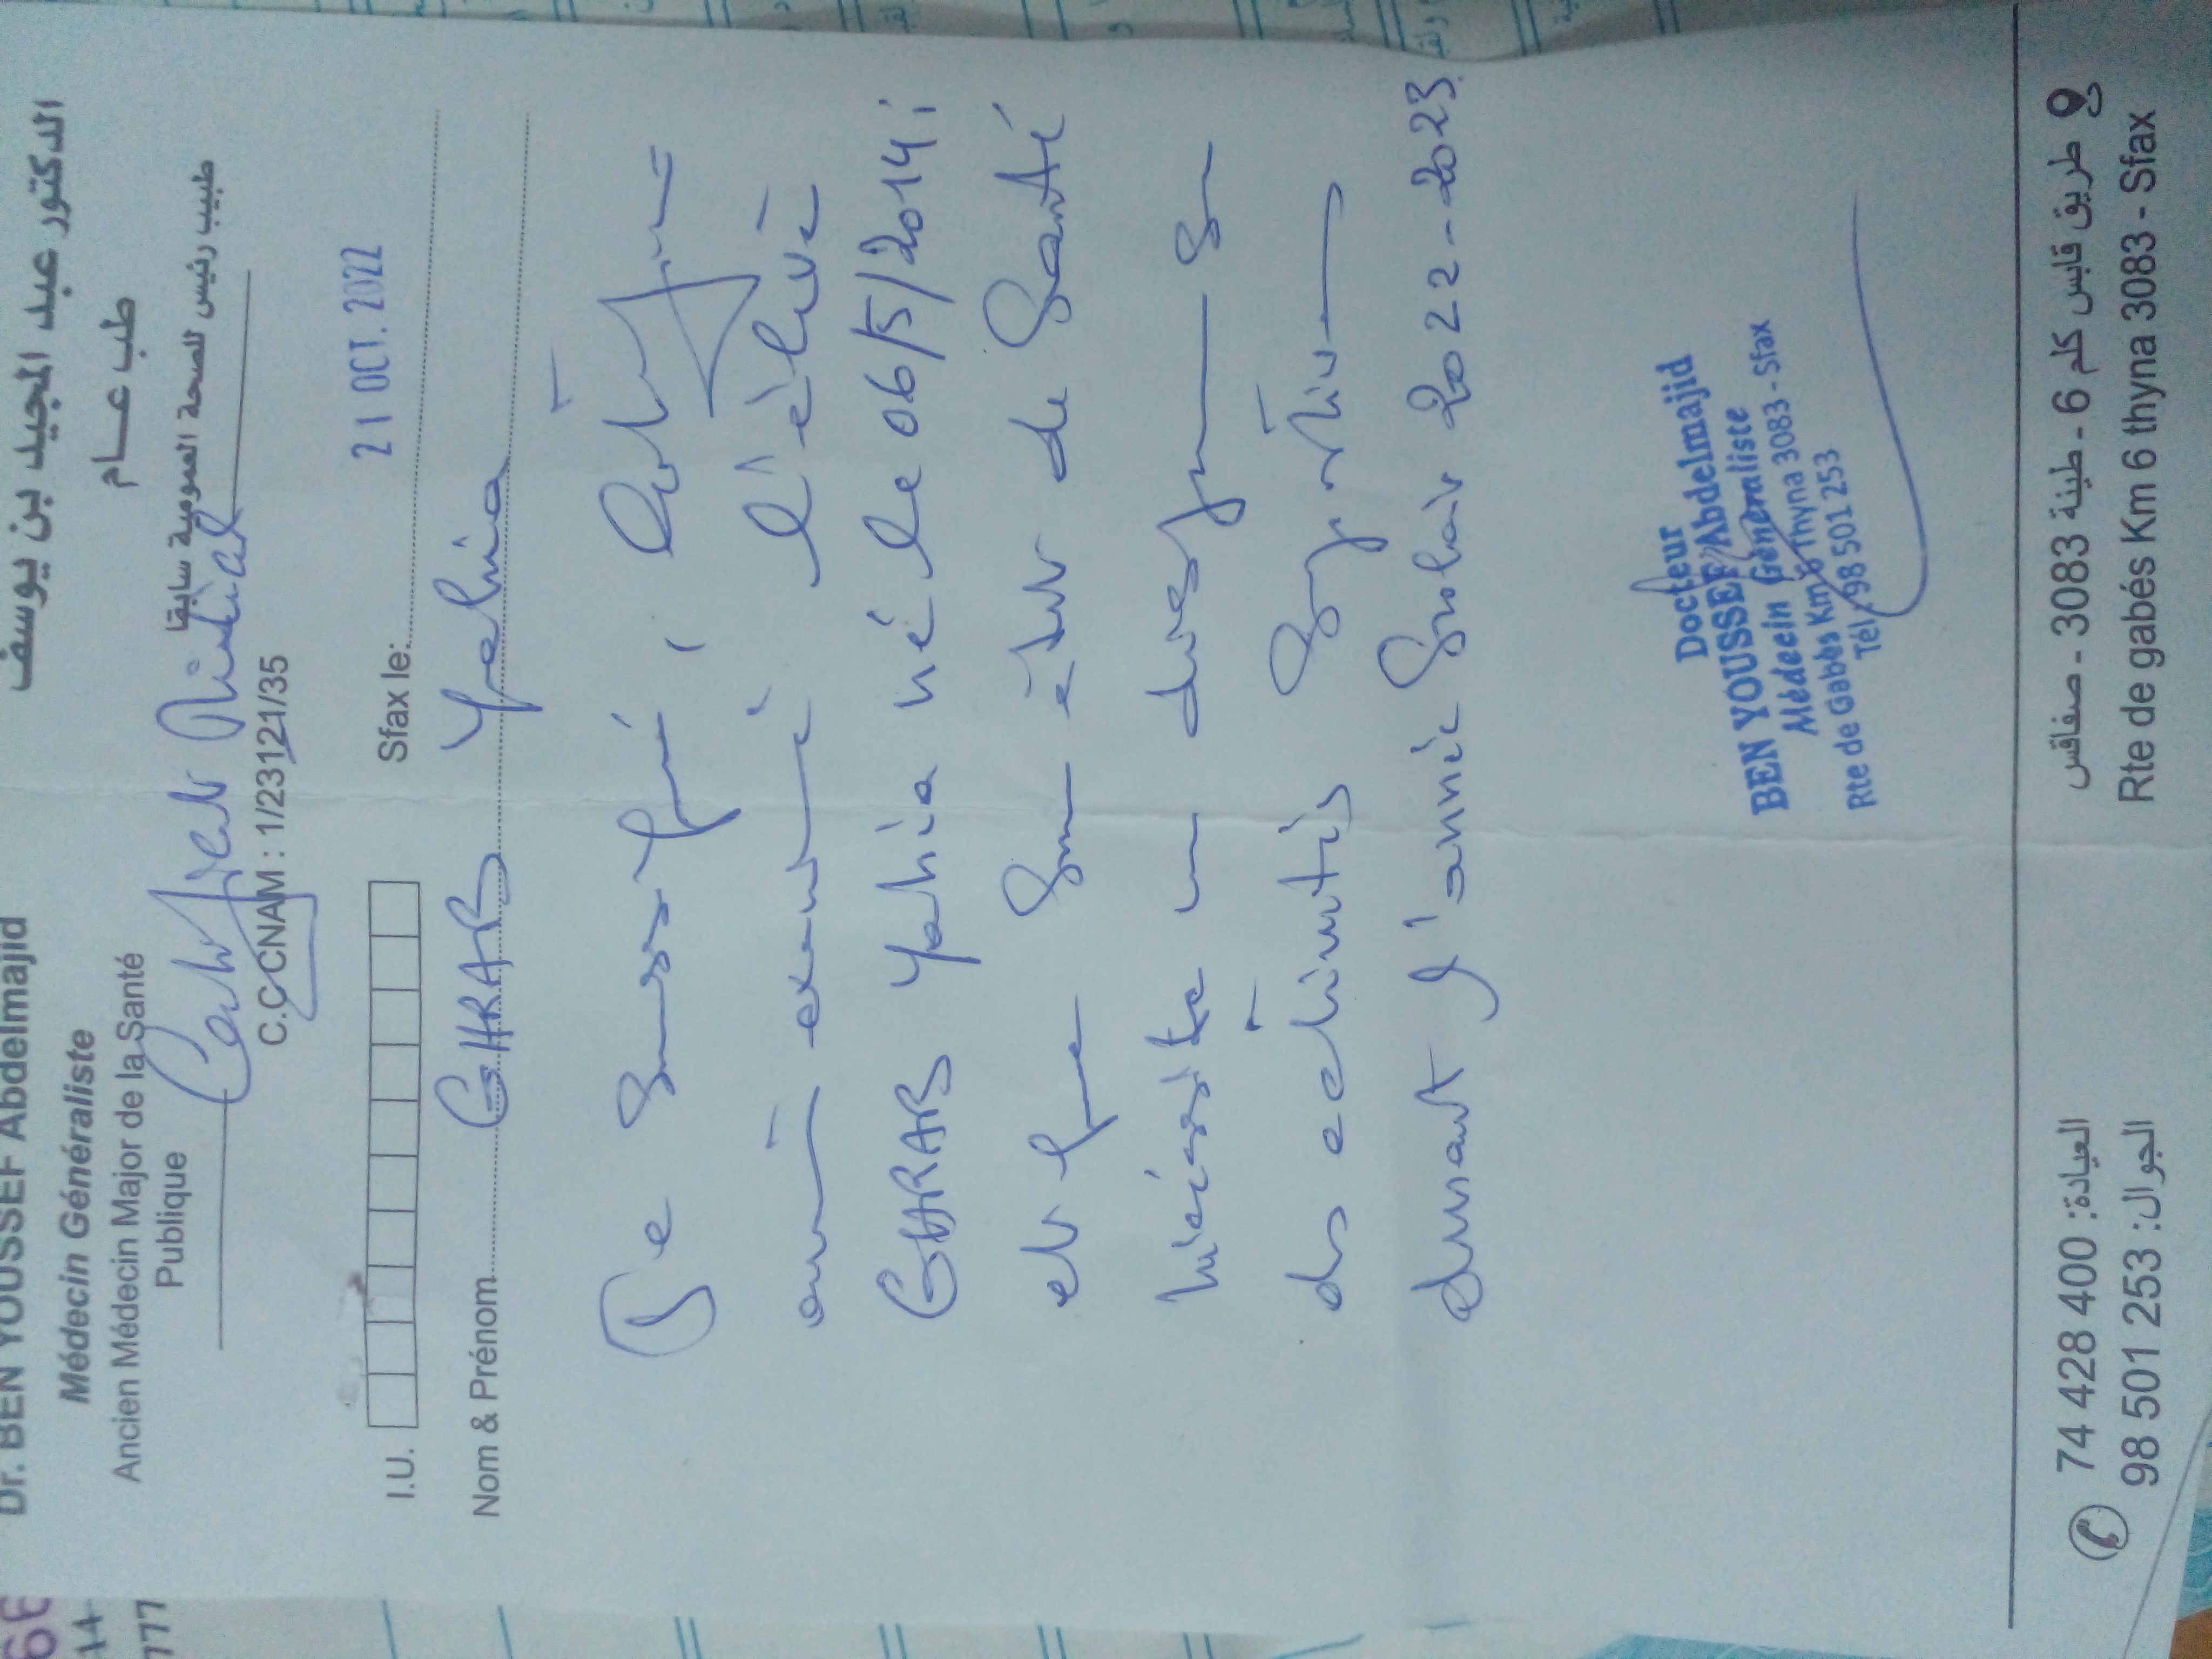 Dr. BEN YOUSSEF Abdelmajid
الدكتور عبد المجيد بن يوسف
Médecin Généraliste
طب عــام
Ancien Médecin Major de la Santé
Publique
طبيب رئيس للصحة العمومية سابقا
Certificat Médical
C.C CNAM : 1/23121/35
I.U.
Sfax le:
21 OCT. 2022
Nom & Prénom
GHRAB Yahia
Je soussigné, certifie
avoir examiné l'élève
GHRAB Yahia né le 06/5/2014
et que son état de Santé
nécessite
des activités sportives
durant l'année Scolaire 2022-2023.
Docteur
BEN YOUSSEF Abdelmajid
Médecin Généraliste
Rte de Gabès Km 6 Thyna 3083 - Sfax
Tél : 98 501 253
74 428 400 :العيادة
98 501 253 :الجوال
طريق قابس كلم 6 - طينة 3083 - صفاقس
Rte de gabés Km 6 thyna 3083 - Sfax